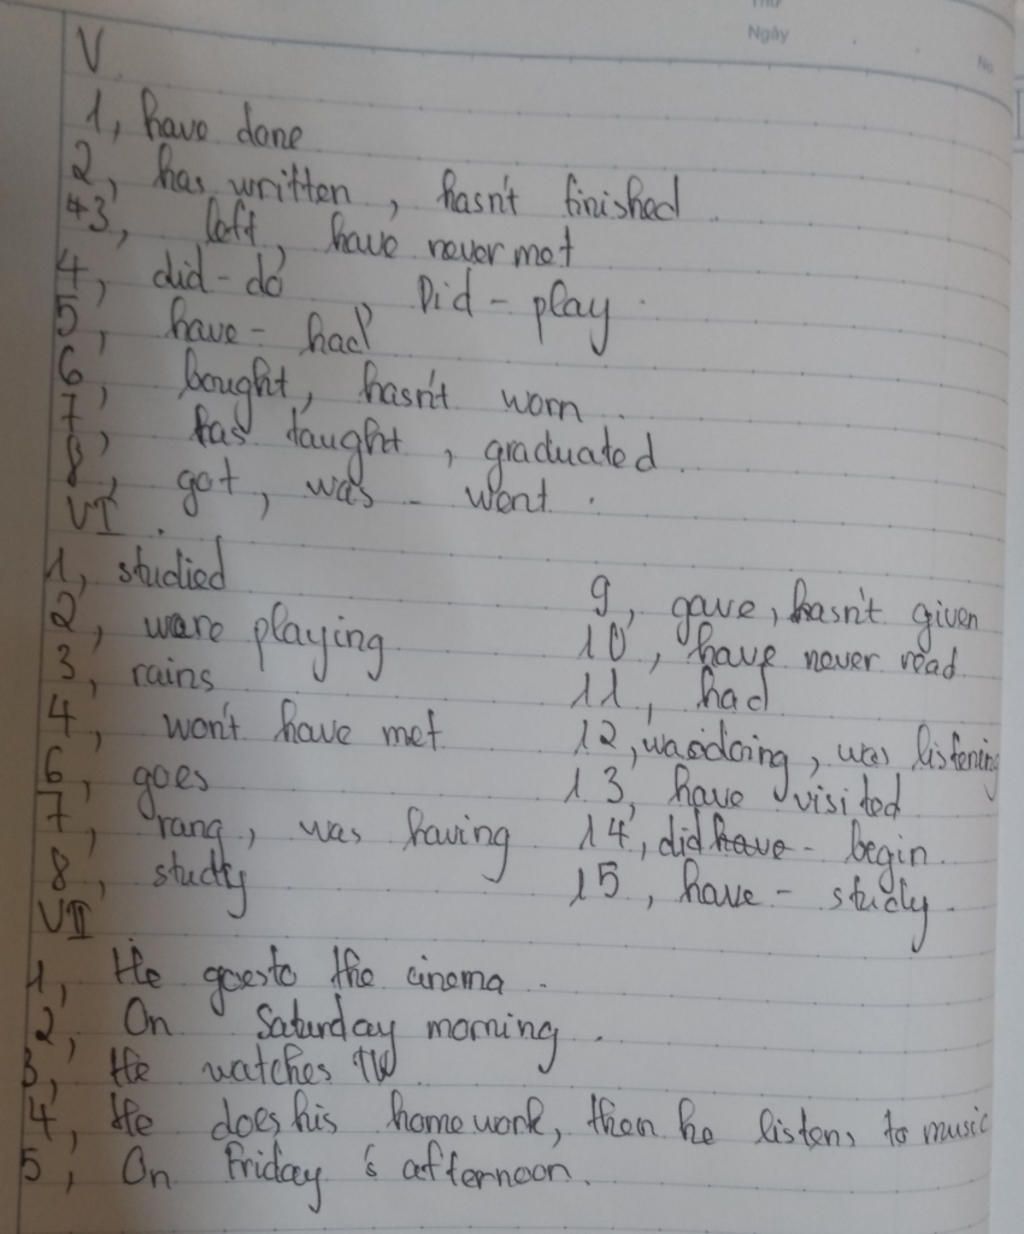 Thứ
Ngày
No
V.
1, have done
2, has written, hasn't finished.
3, left, have never met
4, did - do, Did - play.
5, have - had
6, bought, hasn't worn.
7, has taught, graduated.
8, got, was - went.
VI.
1, studied
2, were playing
3, rains
4, won't have met
6, goes
7, rang, was having
8, study
9, gave, hasn't given
10, have never read
11, had
12, was doing, was listening
13, have visited
14, did have - begin.
15, have - study.
VII
1, He goes to the cinema.
2, On Saturday morning.
3, He watches TV
4, He does his home work, then he listens to music
5, On Friday's afternoon.